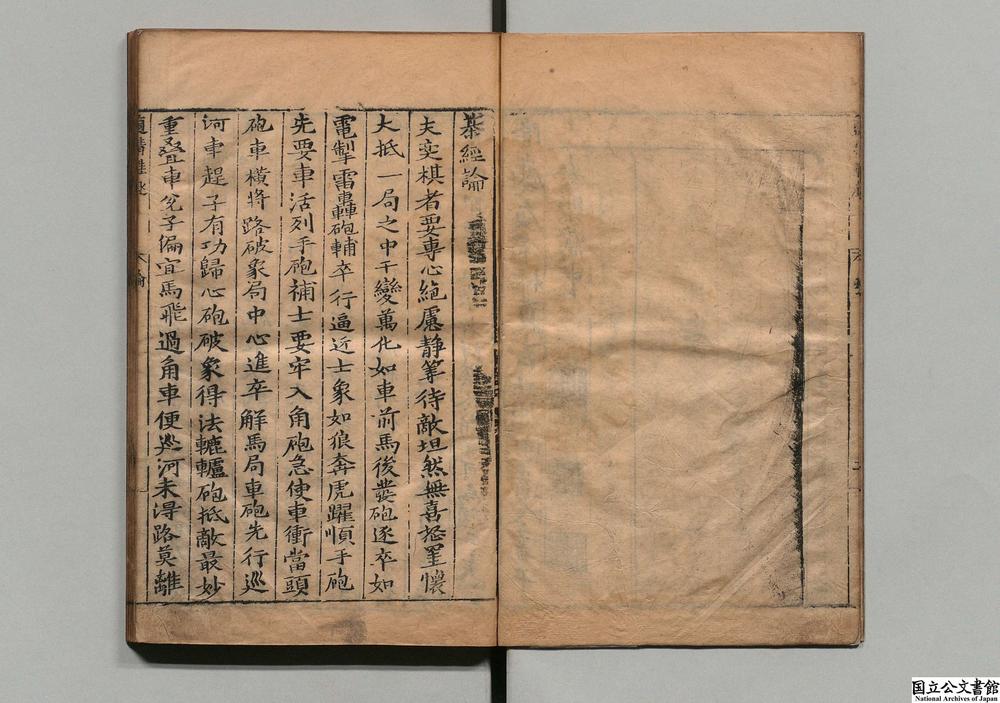 棊經論
夫奕棋者要專心絶慮靜筭待敵坦然無喜怒罣懷
大抵一局之中千變萬化如車前馬後發砲逐卒如
電掣雷轟砲輔卒行逼近士象如狼奔虎躍順手砲
先要車活列手砲補士要牢入角砲急使車衝當頭
砲車橫將路破象局中心進卒解馬局車砲先行巡
河車趕子有功歸心砲破象得法轆轤砲抵敵最妙
重疊車兌子偏宜馬飛過角車便巡河未得路莫離
国立公文書館
National Archives of Japan